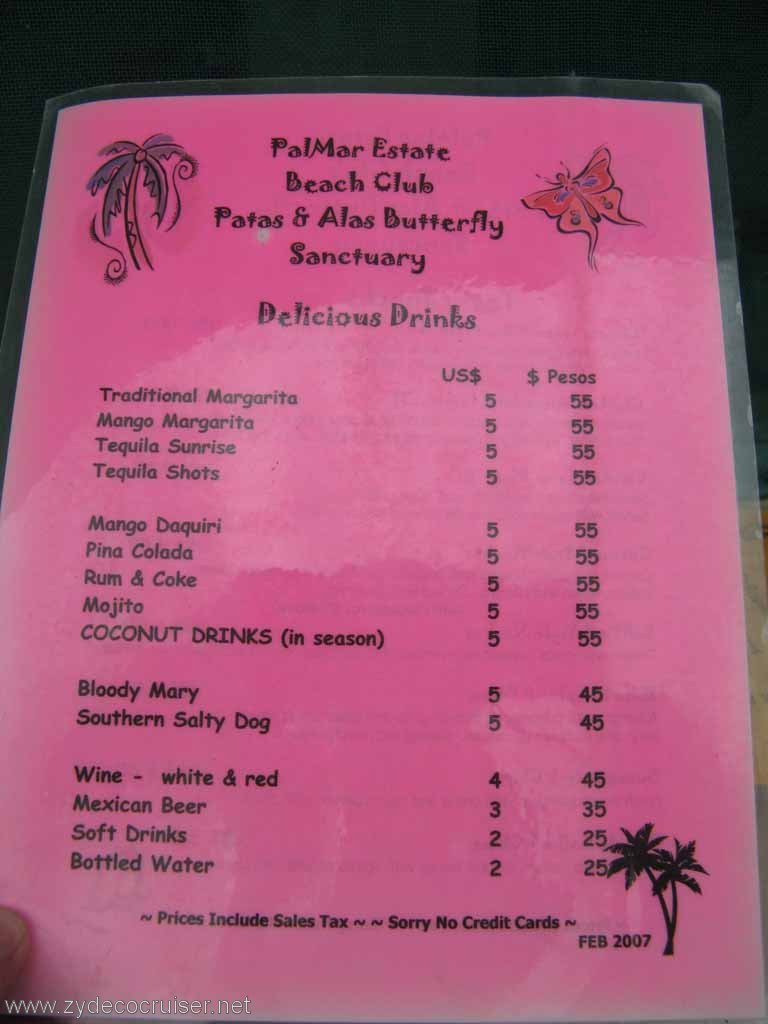 PalMar Estate
Beach Club
Patas & Alas Butterfly
Sanctuary
Delicious Drinks
US$ $ Pesos
Traditional Margarita 5 55
Mango Margarita 5 55
Tequila Sunrise 5 55
Tequila Shots 5 55
Mango Daquiri 5 55
Pina Colada 5 55
Rum & Coke 5 55
Mojito 5 55
COCONUT DRINKS (in season) 5 55
Bloody Mary 5 45
Southern Salty Dog 5 45
Wine - white & red 4 45
Mexican Beer 3 35
Soft Drinks 2 25
Bottled Water 2 25
~ Prices Include Sales Tax ~ ~ Sorry No Credit Cards ~
FEB 2007
www.zydecocruiser.net